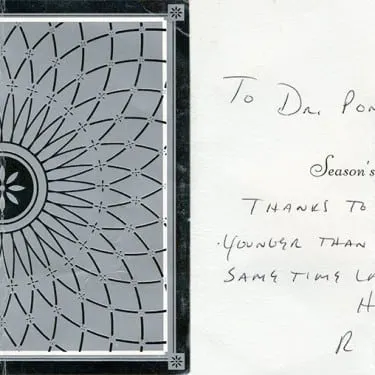 To Dr. Por
Season's
Thanks to
Younger than
same time La
H
R